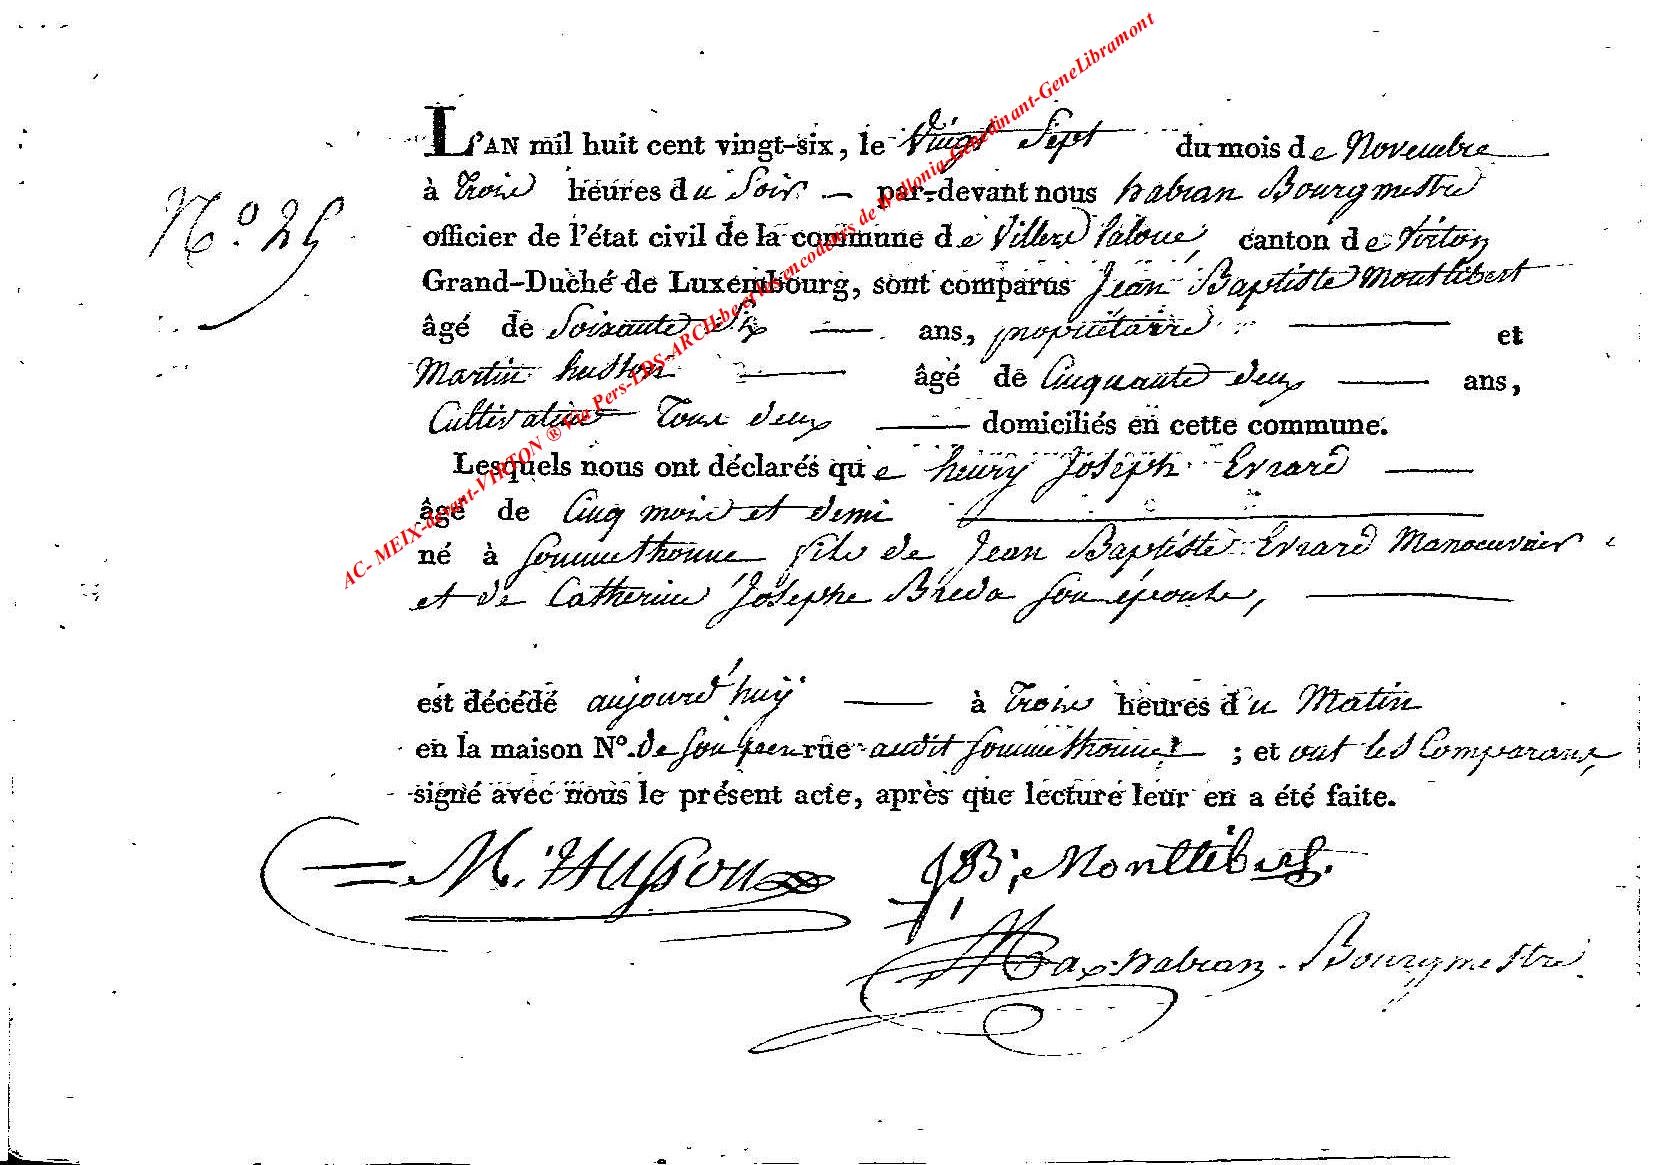 AC- MEIX-devant-VIRTON ® Via Pers-LDS-ARCH.be et les encodeurs de Wallonia-Genedinant-GeneLibramont
L'AN mil huit cent vingt-six, le Vingt Sept du mois de Novembre
à trois heures du Soir par-devant nous habran Bourgmestre
N.o 25
officier de l'état civil de la commune de Villers laloue, canton de Virton
Grand-Duché de Luxembourg, sont comparus Jean Baptiste Montlibert
âgé de Soixante dix ans, propriétaire et
Martin husson âgé de Cinquante deux ans,
Cultivateur Tous deux domiciliés en cette commune.
Lesquels nous ont déclarés que henry Joseph Evrard
âgé de Cinq mois et demi
né à Sommethonne fils de Jean Baptiste Evrard Manoeuvrier
et de Catherine Josephe Breda son épouse,
est décédé aujourd'huy à trois heures du Matin
en la maison N.o de son père rue audit Sommethonne ; et ont les Comparans,
signé avec nous le présent acte, après que lecture leur en a été faite.
M. Husson JB, Montlibert.
habran. Bourgmestre